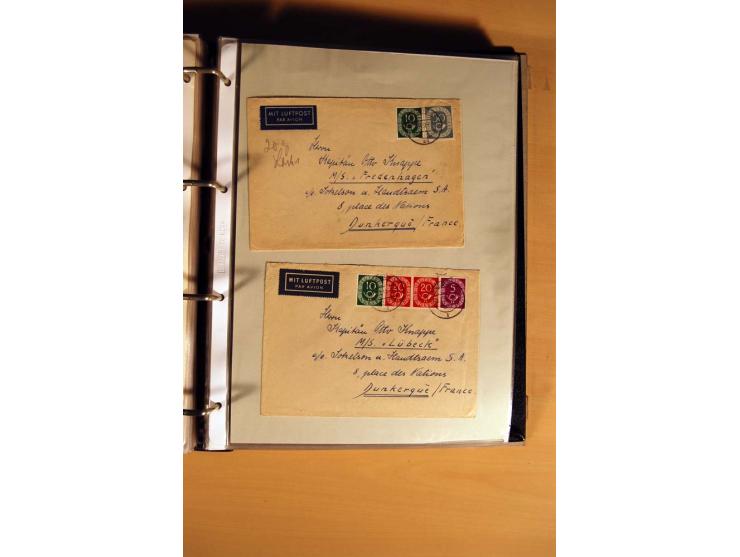 MIT LUFTPOST
PAR AVION
10
Herrn
Kapitän Otto Knappe
M/S. "Fredenhagen"
c/o. Jokelson u. Handtsaem S.A.
8, place des Nations
Dunkerque / France
MIT LUFTPOST
PAR AVION
10 20 20 5
Herrn
Kapitän Otto Knappe
M/S. "Lübeck"
c/o. Jokelson u. Handtsaem S.A.
8, place des Nations
Dunkerque / France